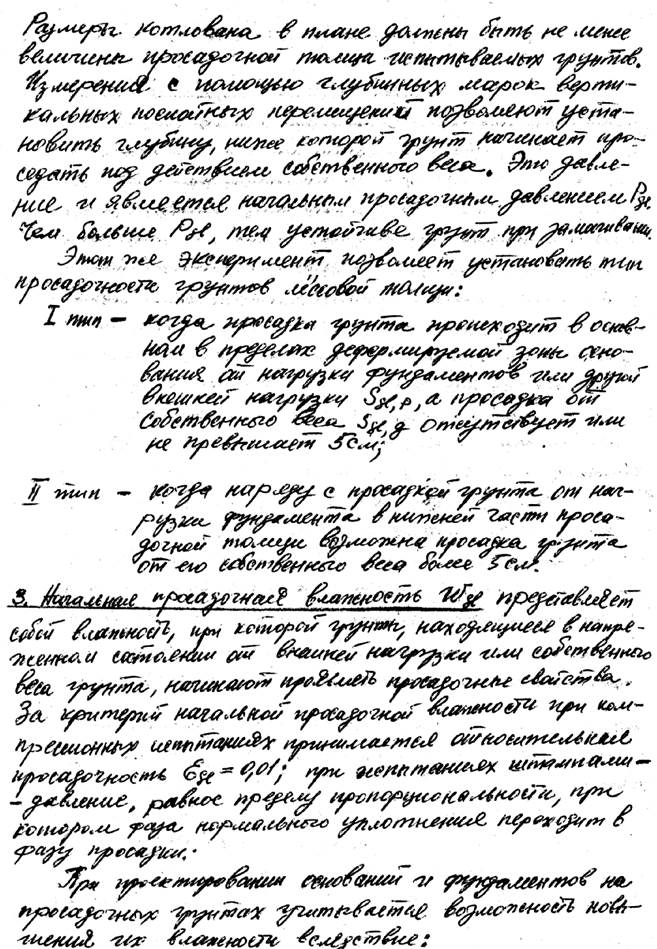 Размеры котлована в плане должны быть не менее
величины просадочной толщи испытываемых грунтов.
Измерения с помощью глубинных марок верти-
кальных послойных перемещений позволяют уста-
новить глубину, ниже которой грунт начинает про-
седать под действием собственного веса. Это давле-
ние и является начальным просадочным давлением Psl.
Чем больше Psl, тем устойчиве грунт при замачивании.
Этот же эксперимент позволяет установить тип
просадочности грунтов лёссовой толщи:
I тип – когда просадка грунта происходит в основ-
ном в пределах деформируемой зоны осно-
вания от нагрузки фундаментов или другой
внешней нагрузки Ssl,p, а просадка от
собственного веса Ssl,g отсутствует или
не превышает 5см;
II тип – когда наряду с просадкой грунта от наг-
рузки фундамента в нижней части проса-
дочной толщи возможна просадка грунта
от его собственного веса более 5 см.
3. Начальная просадочная влажность Wsl представляет
собой влажность, при которой грунты, находящиеся в напря-
женном состоянии от внешней нагрузки или собственного
веса грунта, начинают проявлять просадочные свойства.
За критерий начальной просадочной влажности при ком-
прессионных испытаниях принимается относительная
просадочность Esl = 0,01; при испытаниях штампами-
- давление, равное пределу пропорциональности, при
котором фаза нормального уплотнения переходит в
фазу просадки.
При проектировании оснований и фундаментов на
просадочных грунтах учитывается возможность повы-
шения их влажности вследствие: